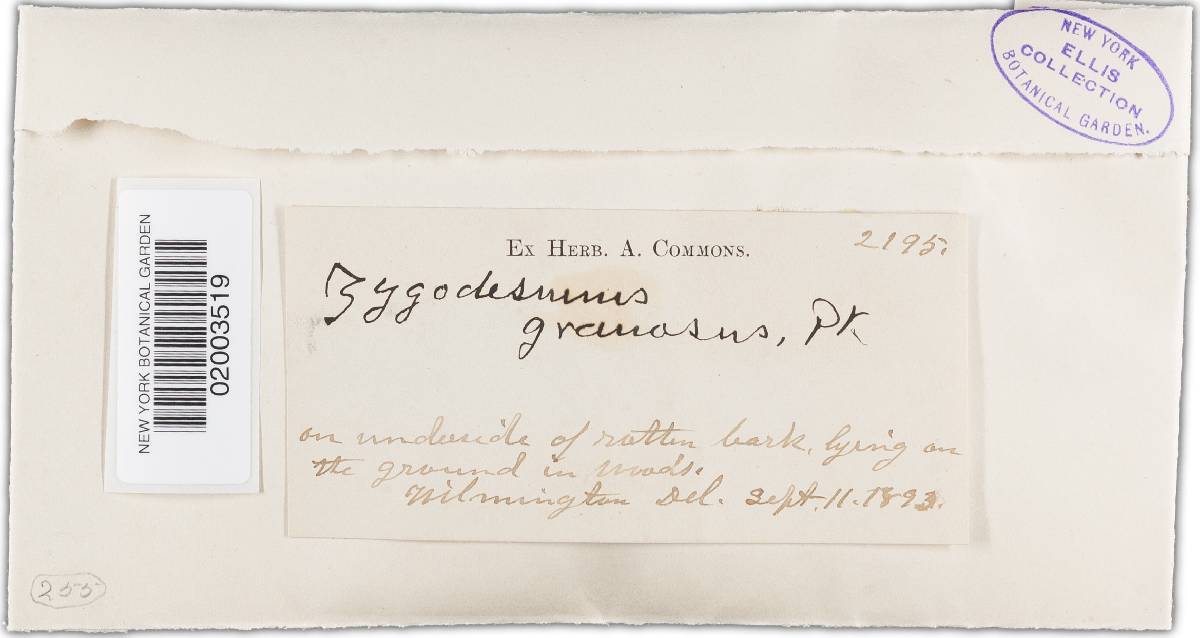 NEW YORK
ELLIS
COLLECTION
BOTANICAL GARDEN.
NEW YORK BOTANICAL GARDEN
02003519
Ex Herb. A. Commons.
2195.
Zygodesmus
granosus, Pk
on underside of rotten bark, lying on
the ground in woods.
Wilmington Del. Sept. 11. 1893.
255